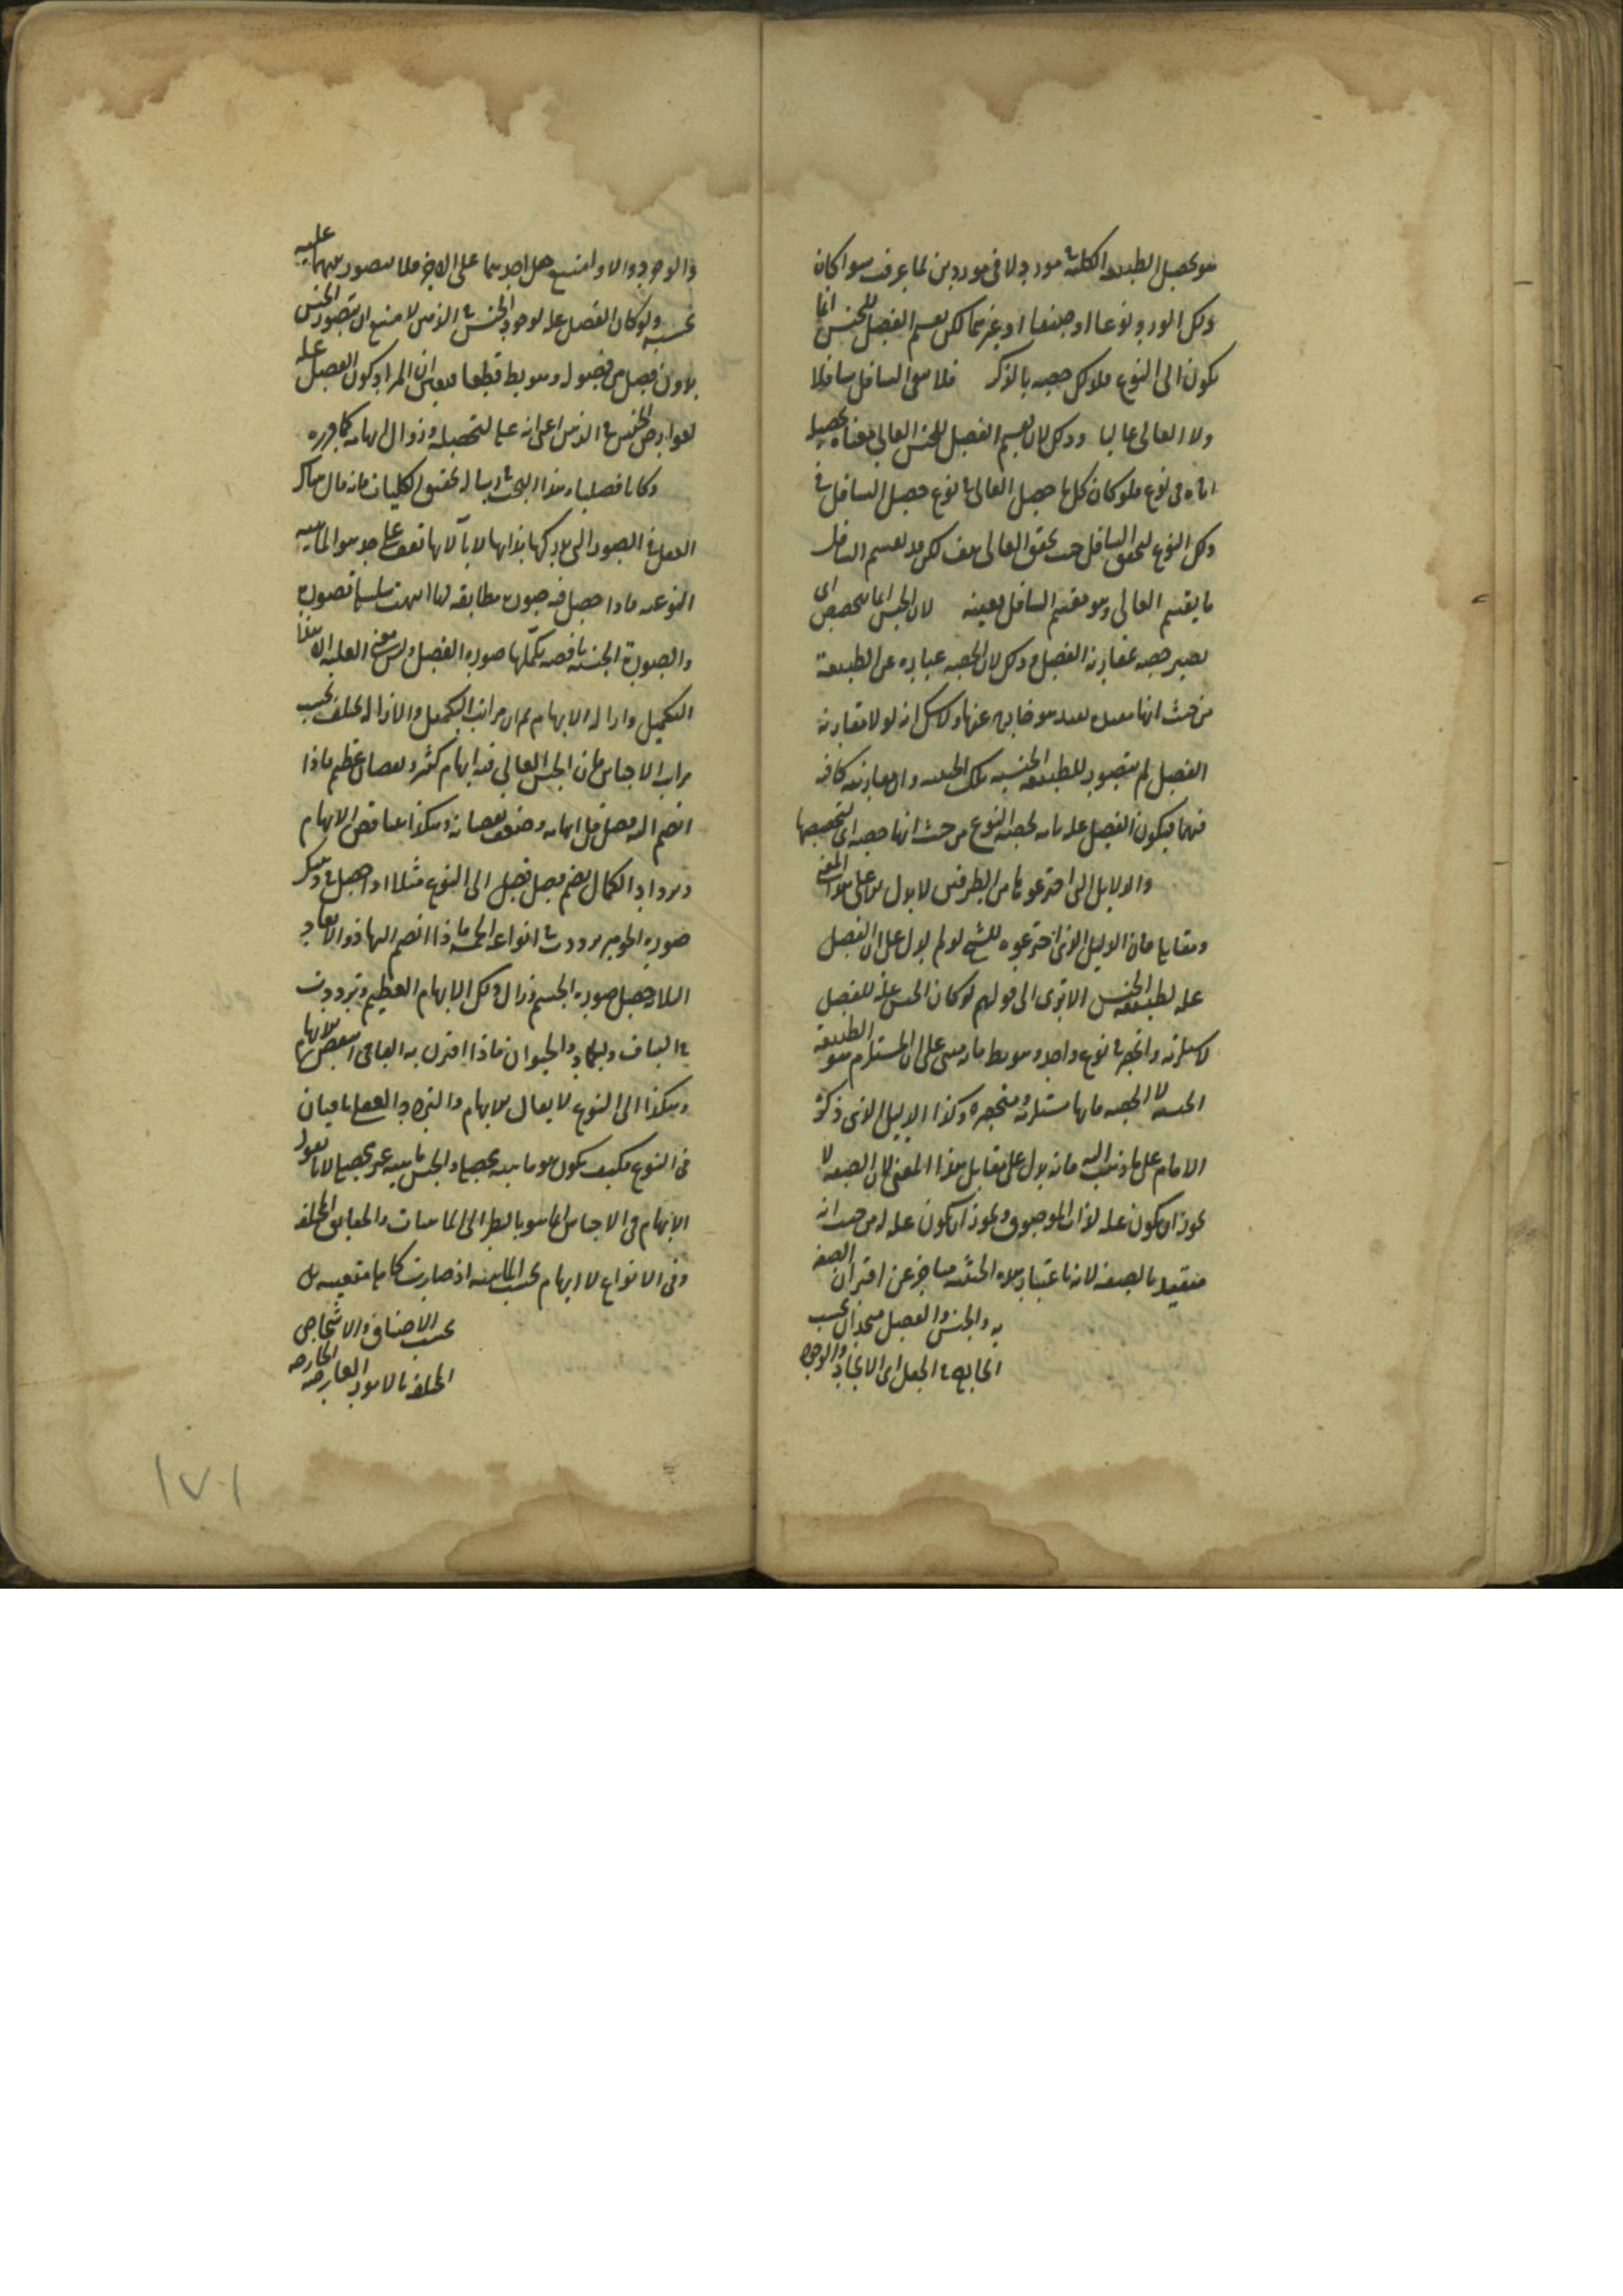 هو تحصيل الطبيعة الكلية في مورد لا في موردين لما عرفت سواء كان
ذلك المورد نوعا او صنفا او غيرهما لكن تقسيم الفصل للجنس انما
يكون الى النوع فلذلك خصه بالذكر فلا يبقى السافل سافلا
ولا العالي عاليا وذلك لان تقسيم الفصل للجنس العالي معناه تحصيله
اياه في نوع فلو كان كل ما حصل العالي في نوع حصل السافل في
ذلك النوع لتحقق السافل حيث تحقق العالي هف لكن قد يقسم السافل
ما يقسم العالي وهو مقسم السافل بعينه لان الجنس انما يتخصص اي
يصير حصة بمقارنة الفصل وذلك لان الحصة عبارة عن الطبيعة
من حيث انها مقيدة بقيد هو خارج عنها ولا شك انه لولا مقارنة
الفصل لم يتصور للطبيعة الجنسية تلك الحيثية وان مقارنته كافية
فيها فيكون الفصل علة تامة لحصة النوع من حيث انها حصة اي لتخصصها
والدلايل التي اخترعوها من الطرفين لا يدل على هذا المعنى
ومقابله فان الدليل الذي اخترعوه للشيخ لو لم يدل على ان الفصل
علة لطبيعة الجنس الا ترى الى قولهم لو كان الجنس علة للفصل
لاستلزمه وانحصر في نوع واحد وهو بط فانه مبني على ان المستلزم هو الطبيعة
الجنسية لا الحصة فانها مستلزمة ومنحصرة وكذا الدليل الذي ذكره
الامام على ما ذهب اليه فانه يدل على مقابل هذا المعنى لان الصفة لا
يجوز ان يكون علة لذات الموصوف ويجوز ان يكون علة له من حيث انه
متقيد بالصفة لانه باعتبار هذه الحيثية متاخر عن اقتران الصفة
به والجنس والفصل متحدان بحسب
الخارج في الجعل اي الايجاد والوجود
والوجود والا لامتنع حمل احدهما على الاخر فلا يتصور بينهما علية
بحسبه ولو كان الفصل علة لوجود الجنس في الذهن لامتنع ان يتصور الجنس
بدون فصل من فصوله وهو بط قطعا فيتعين ان المراد كون الفصل علة
لعوارض الجنس في الذهن اعني انه علة لتحصله وزوال ابهامه كما قرره
وكانا فصلنا هذا البحث في رسالة تحقيق الكليات فانه قال هناك
العقل في الصور التي يدركها بذاتها لا بآلاتها تقف على حد هو الماهية
النوعية فاذا حصل فيه صورة مطابقة لها انتهت سلسلة تصوره
والصورة الجنسية ناقصة يكملها صورة الفصل وليس معنى العلية الا هذا
التكميل وازالة الابهام ثم ان مراتب التكميل والازالة يختلف بحسب
مراتب الاجناس فان الجنس العالي فيه ابهام كثير ونقصان عظيم فاذا
انضم اليه فصل قل ابهامه وضعف نقصانه وهكذا يتناقص الابهام
ويزداد الكمال بضم فصل فصل الى النوع مثلا اذا حصل في ذهنك
صورة الجوهر ترددت في انواعه الخمسة فاذا انضم اليها ذو الابعاد
الثلاثة حصل صورة الجسم فزال ذلك الابهام العظيم وترددت
في النبات والجماد والحيوان فاذا اقترن به النامي انتقص الابهام
وهكذا الى النوع لا يقال الابهام والتردد العقلي باقيان
في النوع فكيف يكون هو ماهية محصلة والجنس ماهية غير محصلة لانا نقول
الابهام في الاجناس انما هو بالنظر الى الماهيات والحقايق المختلفة
وفي الانواع لا ابهام بحسب الماهية اذ صارت كلها متعينة بل
بحسب الاصناف والاشخاص
المختلفة بالامور العارضة الخارجة
١٧١